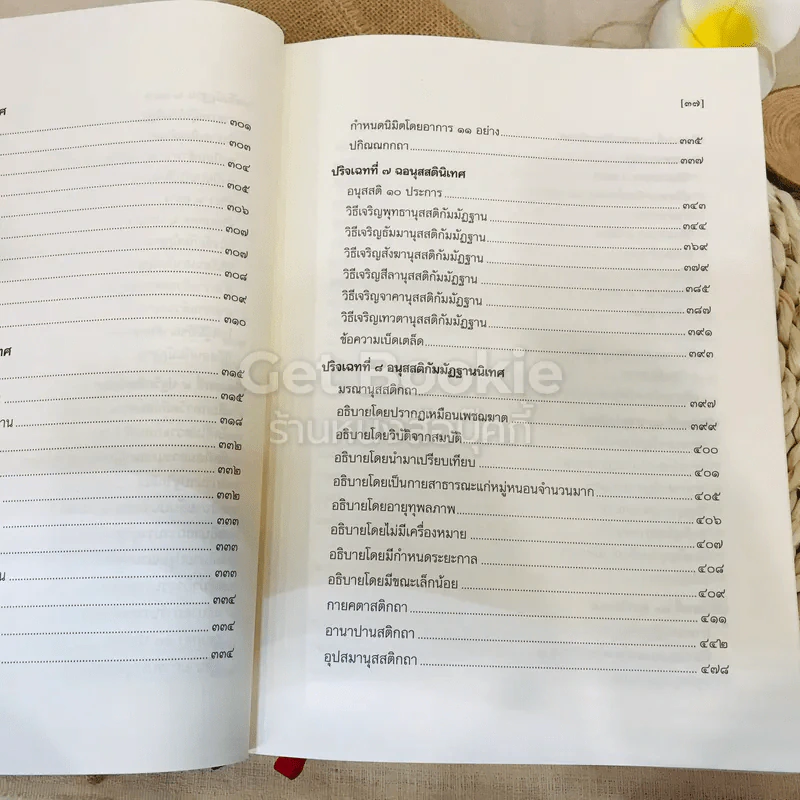 ศ
๓๐๑
๓๐๓
๓๐๔
๓๐๕
๓๐๖
๓๐๗
๓๐๗
๓๐๘
๓๐๙
๓๑๐
ทศ
๓๑๕
๓๑๕
าน ๓๑๘
๓๓๒
๓๓๒
๓๓๒
๓๓๓
๓๓๓
น ๓๓๓
๓๓๔
๓๓๔
๓๓๔
[๓๗]
กำหนดนิมิตโดยอาการ ๑๑ อย่าง ๓๓๕
ปกิณณกกถา ๓๓๗
ปริจเฉทที่ ๗ ฉอนุสสตินิเทศ
อนุสสติ ๑๐ ประการ ๓๔๓
วิธีเจริญพุทธานุสสติกัมมัฏฐาน ๓๔๔
วิธีเจริญธัมมานุสสติกัมมัฏฐาน ๓๖๙
วิธีเจริญสังฆานุสสติกัมมัฏฐาน ๓๗๙
วิธีเจริญสีลานุสสติกัมมัฏฐาน ๓๘๕
วิธีเจริญจาคานุสสติกัมมัฏฐาน ๓๘๗
วิธีเจริญเทวตานุสสติกัมมัฏฐาน ๓๙๑
ข้อความเบ็ดเตล็ด ๓๙๓
ปริจเฉทที่ ๘ อนุสสติกัมมัฏฐานนิเทศ
มรณานุสสติกถา ๓๙๗
อธิบายโดยปรากฏเหมือนเพชฌฆาต ๓๙๙
อธิบายโดยวิบัติจากสมบัติ ๔๐๐
อธิบายโดยนำมาเปรียบเทียบ ๔๐๑
อธิบายโดยเป็นกายสาธารณะแก่หมู่หนอนจำนวนมาก ๔๐๕
อธิบายโดยอายุทุพลภาพ ๔๐๖
อธิบายโดยไม่มีเครื่องหมาย ๔๐๗
อธิบายโดยมีกำหนดระยะกาล ๔๐๘
อธิบายโดยมีขณะเล็กน้อย ๔๐๙
กายคตาสติกถา ๔๑๑
อานาปานสติกถา ๔๔๒
อุปสมานุสสติกถา ๔๗๘
Get Bookie
ร้านหนังสือบุคกี้